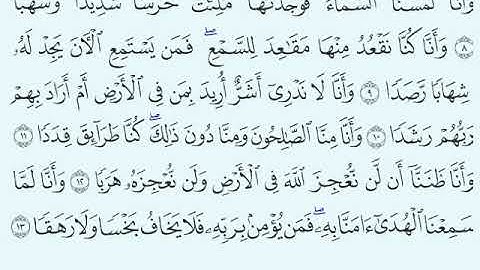 وَأَنَّا لَمَسْنَا ٱلسَّمَآءَ فَوَجَدْنَٰهَا مُلِئَتْ حَرَسًا شَدِيدًا وَشُهُبًا
٨ وَأَنَّا كُنَّا نَقْعُدُ مِنْهَا مَقَٰعِدَ لِلسَّمْعِ ۖ فَمَن يَسْتَمِعِ ٱلْءَانَ يَجِدْ لَهُۥ
شِهَابًا رَّصَدًا ٩ وَأَنَّا لَا نَدْرِىٓ أَشَرٌّ أُرِيدَ بِمَن فِى ٱلْأَرْضِ أَمْ أَرَادَ بِهِمْ
رَبُّهُمْ رَشَدًا ١٠ وَأَنَّا مِنَّا ٱلصَّٰلِحُونَ وَمِنَّا دُونَ ذَٰلِكَ ۖ كُنَّا طَرَآئِقَ قِدَدًا ١١
وَأَنَّا ظَنَنَّآ أَن لَّن نُّعْجِزَ ٱللَّهَ فِى ٱلْأَرْضِ وَلَن نُّعْجِزَهُۥ هَرَبًا ١٢ وَأَنَّا لَمَّا
سَمِعْنَا ٱلْهُدَىٰٓ ءَامَنَّا بِهِۦ ۖ فَمَن يُؤْمِنۢ بِرَبِّهِۦ فَلَا يَخَافُ بَخْسًا وَلَا رَهَقًا ١٣